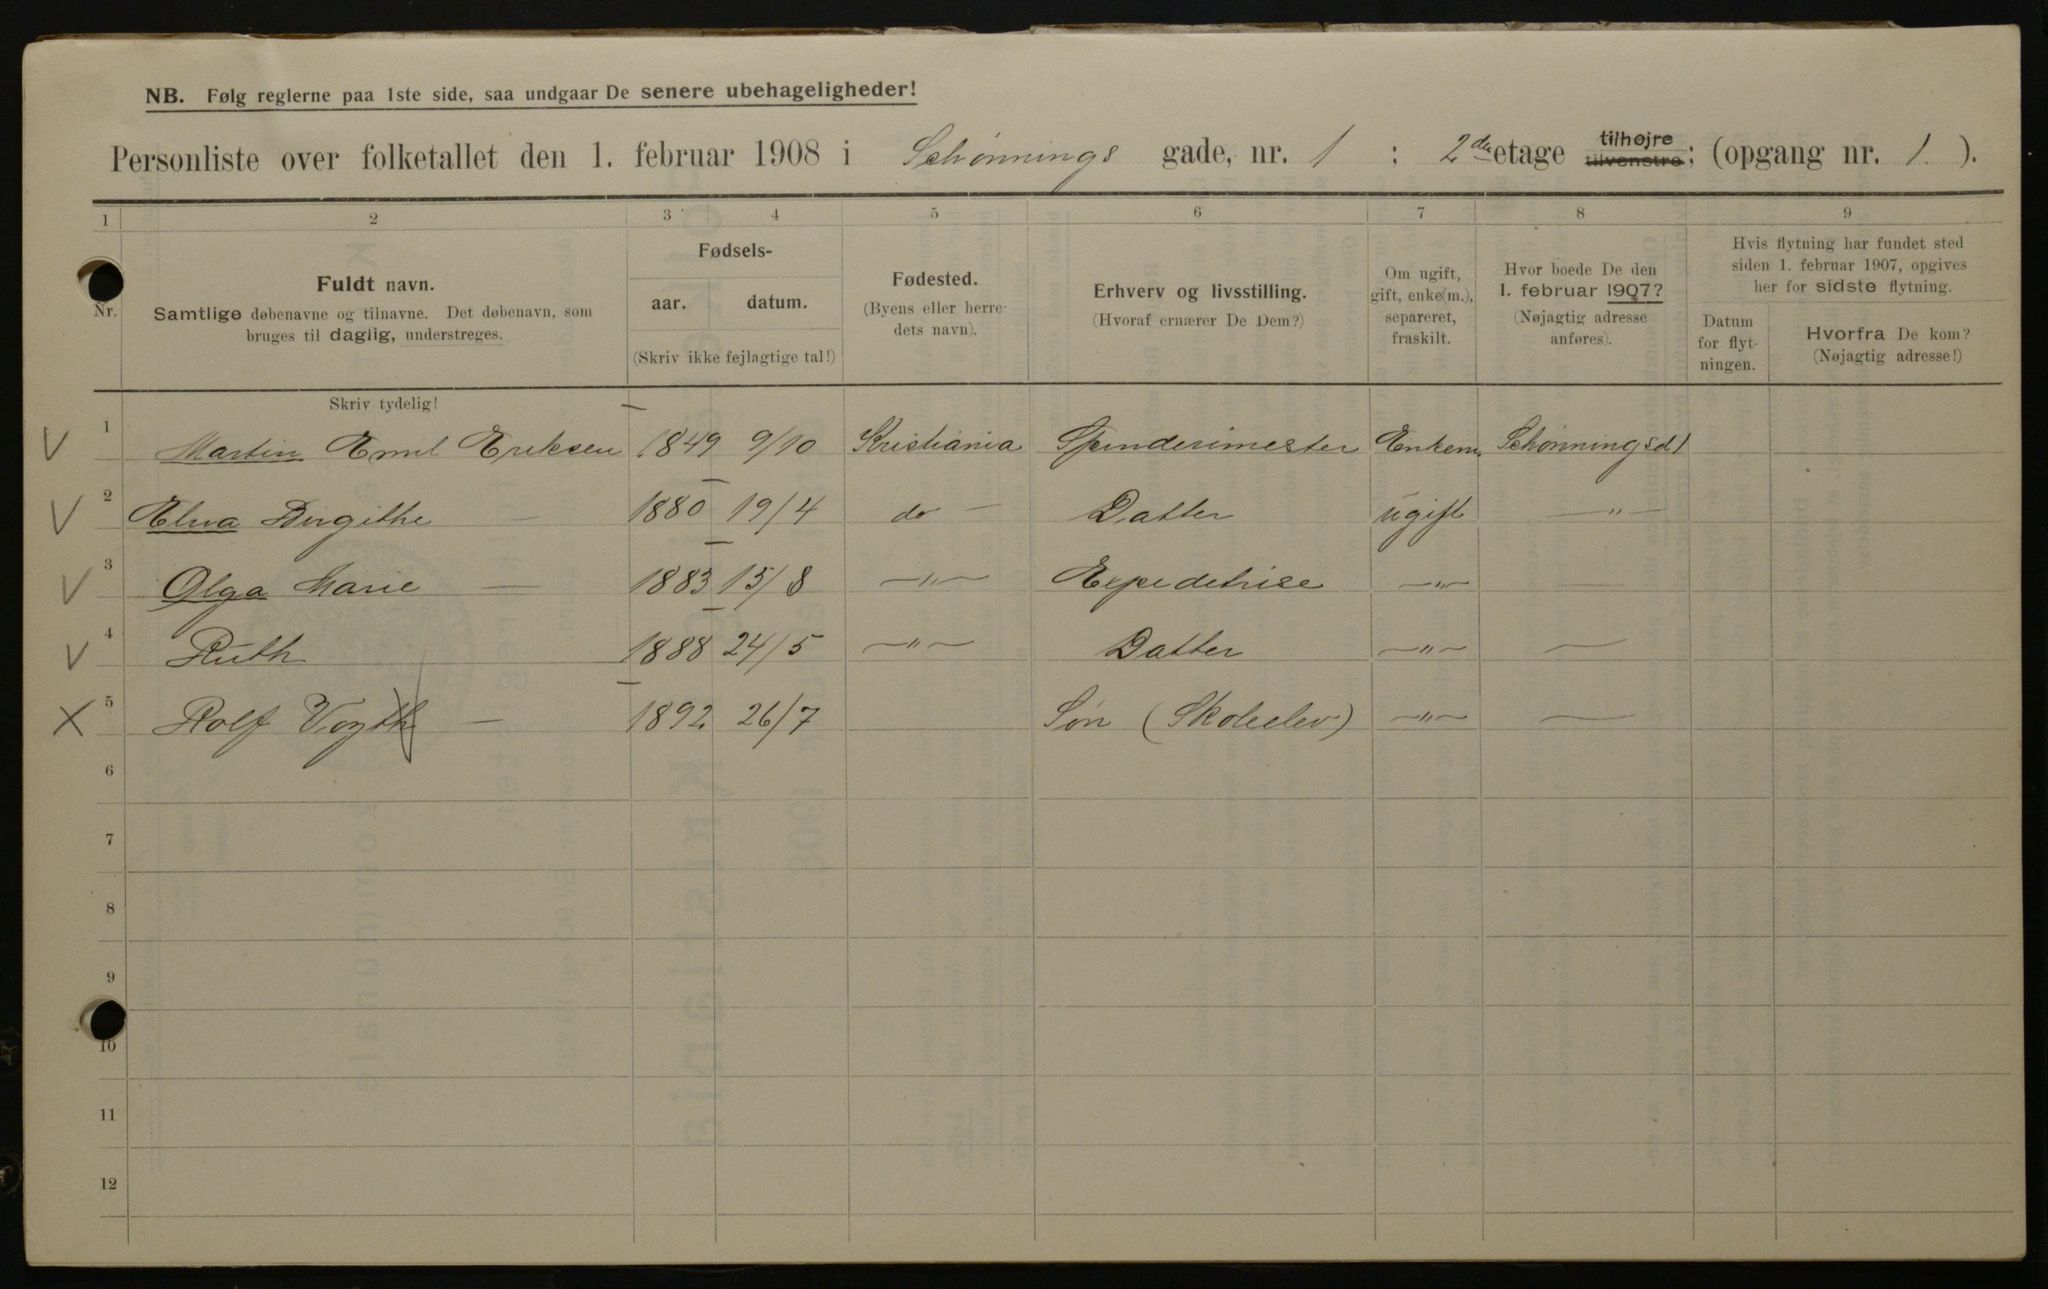 NB. Følg reglerne paa 1ste side, saa undgaar De senere ubehageligheder!
Personliste over folketallet den 1. februar 1908 i Schønnings gade, nr. 1 ; 2den etage tilhøjre tilvenstre; (opgang nr. 1 ).
1 2 3 4 5 6 7 8 9
Nr.
Fuldt navn.
Samtlige døbenavne og tilnavne. Det døbenavn, som
bruges til daglig, understreges.
Fødsels-
aar. datum.
(Skriv ikke fejlagtige tal!)
Fødested.
(Byens eller herre-
dets navn).
Erhverv og livsstilling.
(Hvoraf ernærer De Dem?)
Om ugift,
gift, enke(m.),
separeret,
fraskilt.
Hvor boede De den
1. februar 1907?
(Nøjagtig adresse
anføres).
Hvis flytning har fundet sted
siden 1. februar 1907, opgives
her for sidste flytning.
Datum
for flyt-
ningen.
Hvorfra De kom?
(Nøjagtig adresse!)
Skriv tydelig!
1 Martin Emil Eriksen 1849 9/10 Kristiania Spinderimester Enkem. Schønningsd 1
2 Elna Birgithe — 1880 19/4 do — Datter ugift —"—
3 Olga Marie — 1883 15/8 —"— Expeditrise —"— —
4 Ruth 1888 24/5 —"— Datter —"— —
5 Rolf Vogth — 1892 26/7 Søn (Skoleelev) —"— —
6
7
8
9
10
11
12